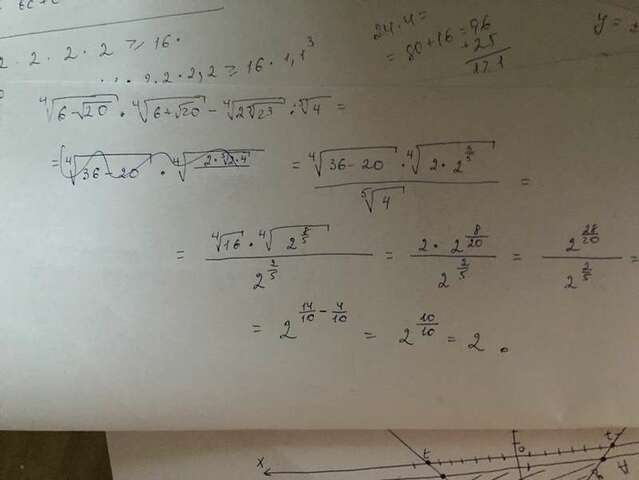 2 · 2 · 2 · 2 ≥ 16 ·
2 · 2 · 2,2 ≥ 16 · 1,1³
24 · 4 =
= 80 + 16 = 96
+ 25
121
y =
⁴√(6 - √20) · ⁴√(6 + √20) - ⁴√(2 ⁵√23) : ⁵√4 =
= ⁴√(36 - 20) · ⁴√ = (⁴√(36 - 20) · ⁴√(2 · 2^(3/5))) / ⁵√4 =
= (⁴√16 · ⁴√(2^(8/5))) / 2^(2/5) = (2 · 2^(8/20)) / 2^(2/5) = 2^(28/20) / 2^(2/5) =
= 2^(14/10 - 4/10) = 2^(10/10) = 2 .
x
t
0
t
A